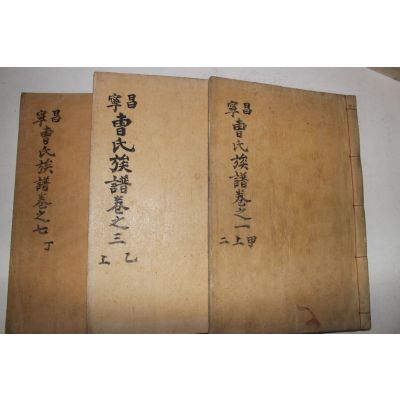 昌寧
曺氏族譜卷之一
甲上二
昌寧
曺氏族譜卷之三
乙上
昌寧
曺氏族譜卷之七
丁